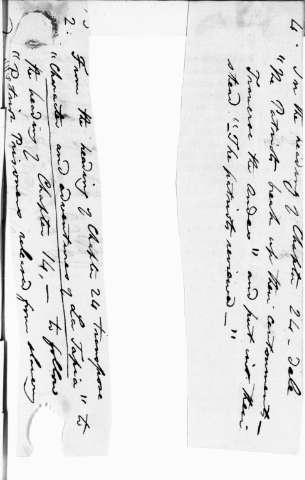 2. From the heading of Chapter 24 transpose
"Character and adventures of La Tapia" to
the heading of Chapter 14, — to follow
"Patriot Prisoners released from slavery
4. In the heading of Chapter 24 — dele
"The Patriots break up their cantonments —
Traverse the Andes" and put into their
stead — "The patriots reviewed — "